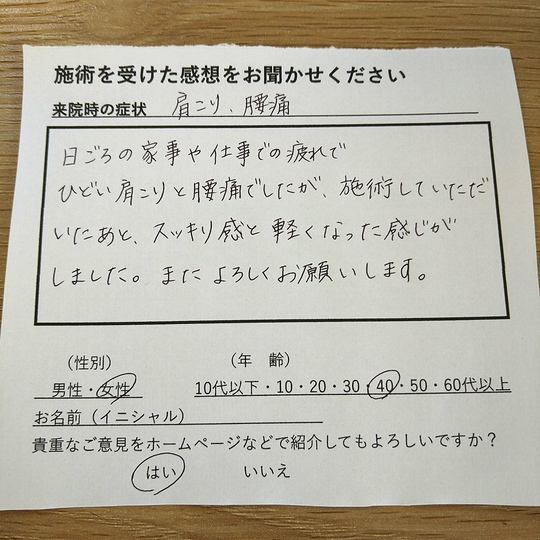 施術を受けた感想をお聞かせください
来院時の症状 肩こり、腰痛
日ごろの家事や仕事での疲れで
ひどい肩こりと腰痛でしたが、施術していただ
いたあと、スッキリ感と軽くなった感じが
しました。またよろしくお願いします。
(性別) (年 齢)
男性・女性 10代以下・10・20・30・40・50・60代以上
お名前(イニシャル)
貴重なご意見をホームページなどで紹介してもよろしいですか?
はい いいえ